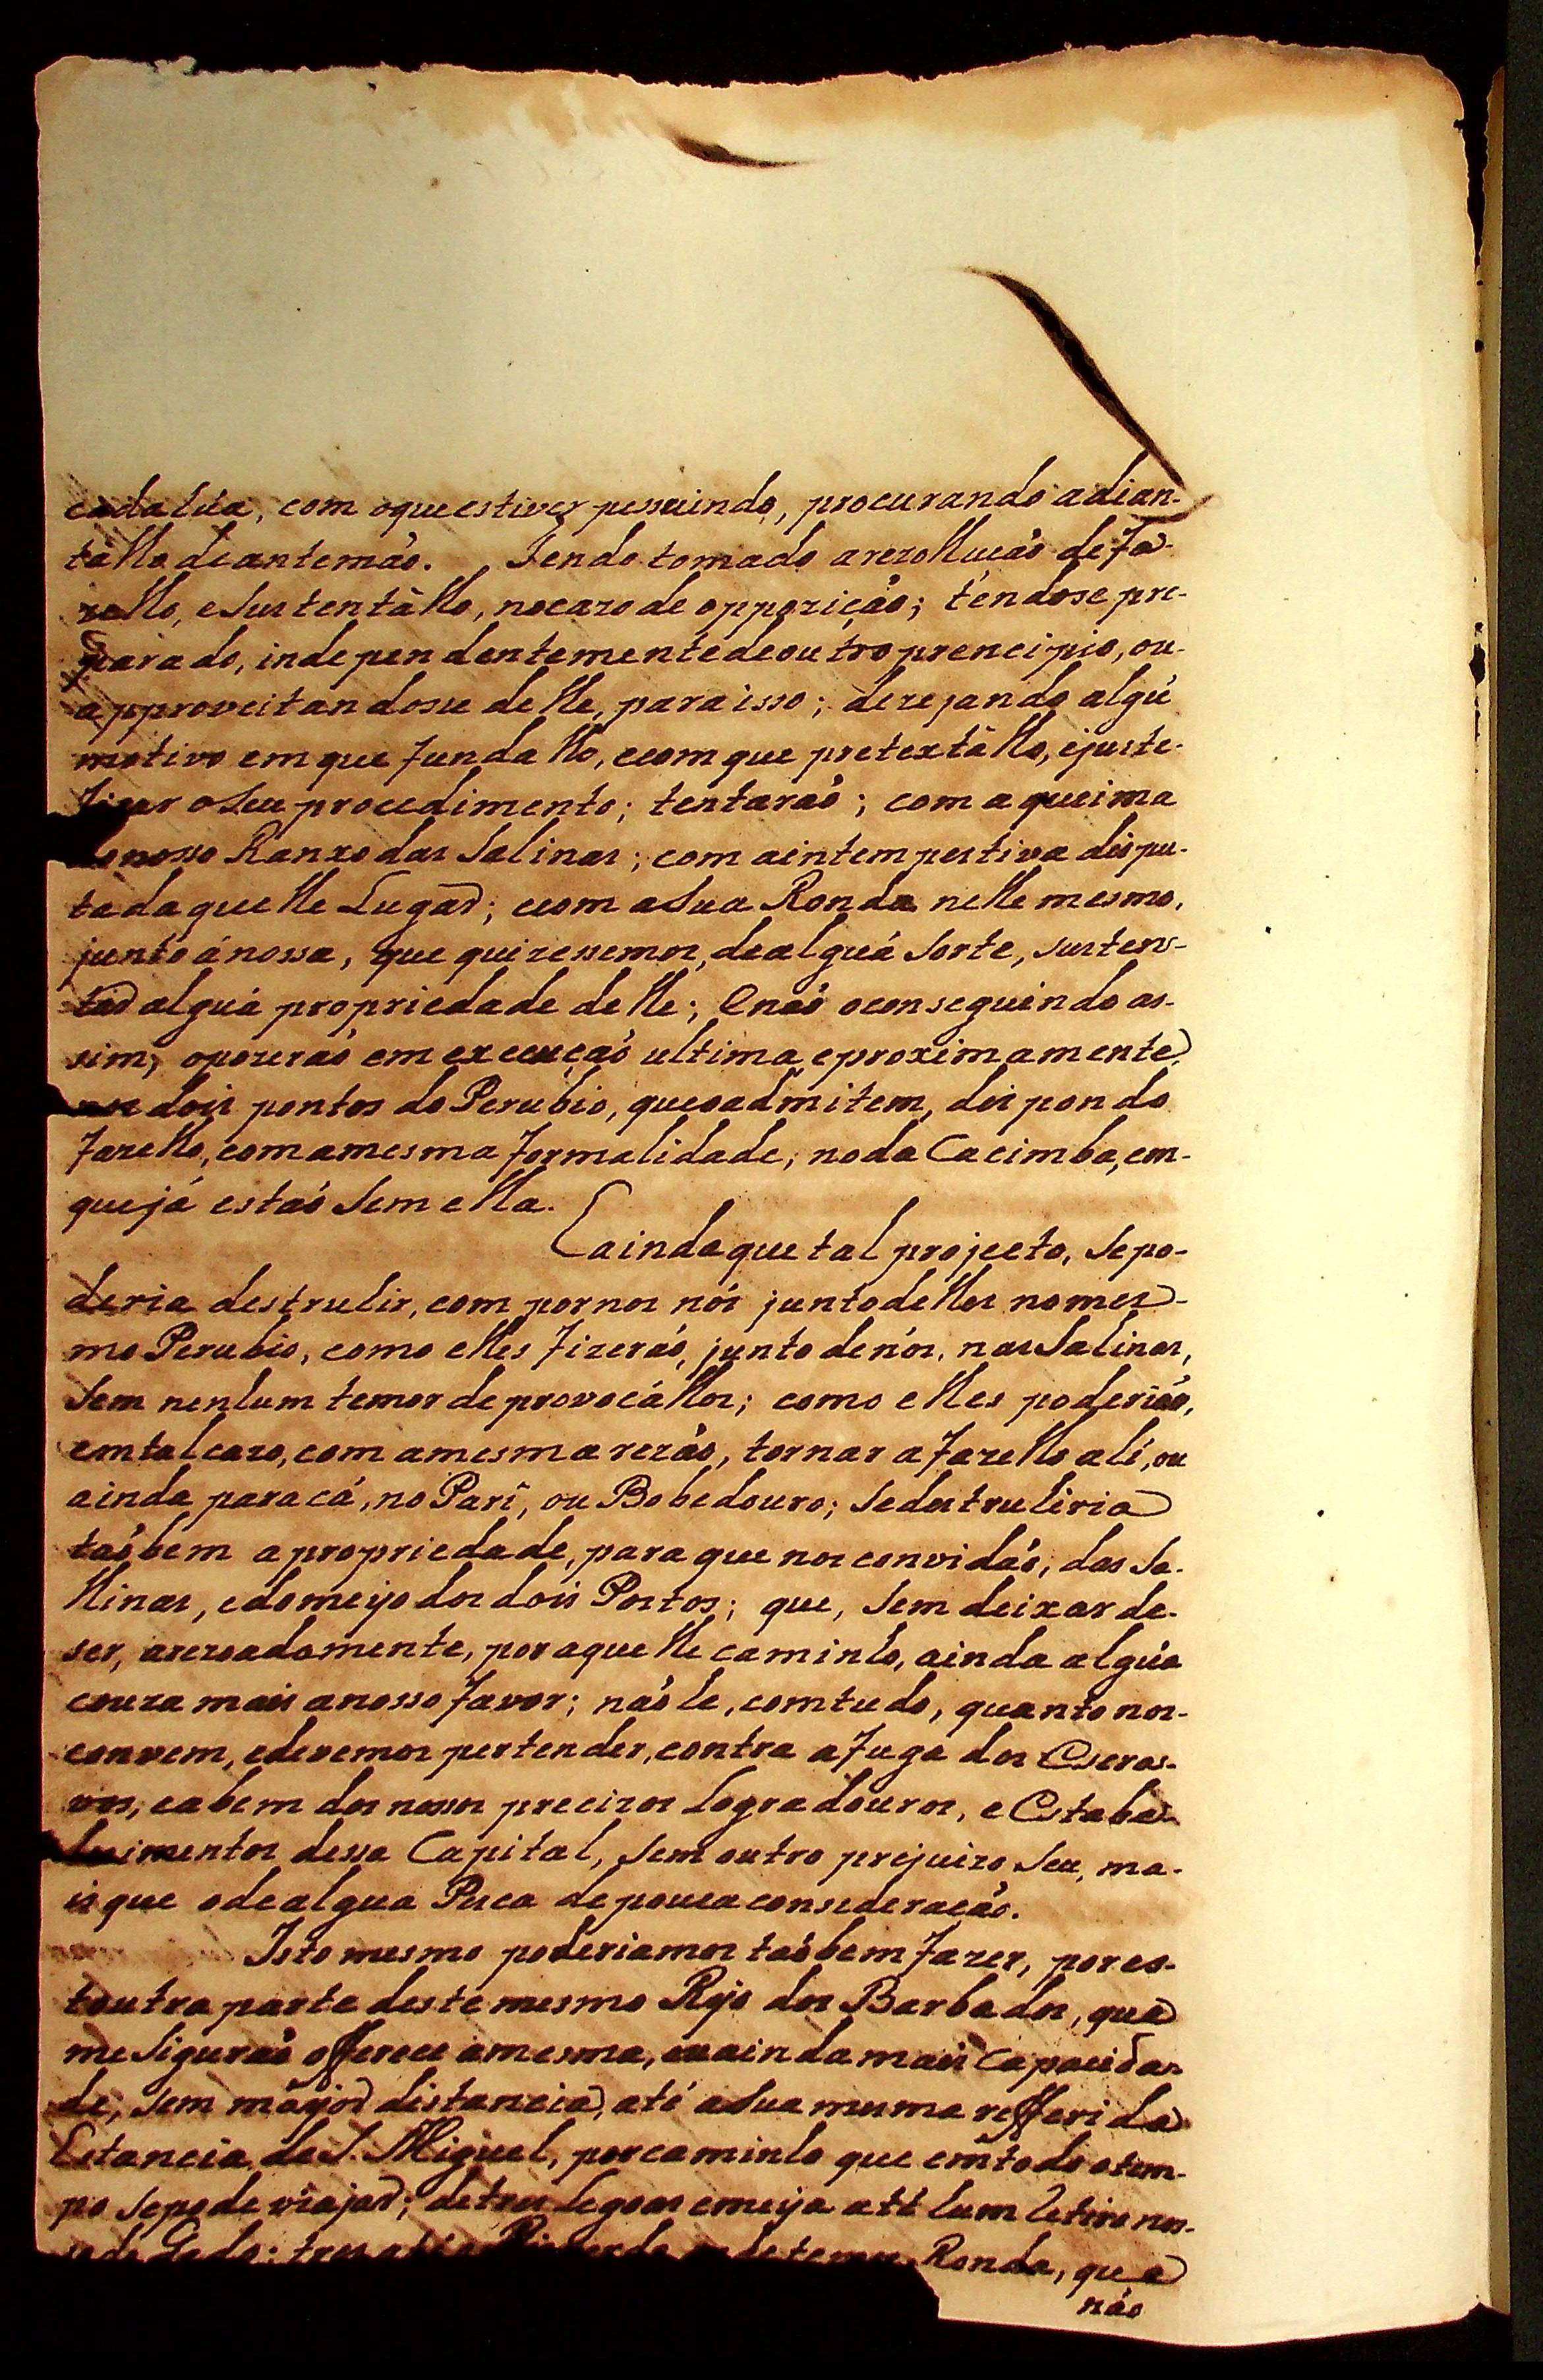 cada lúa, com oque estiver pessuindo, procurando adian-
tâllo deantemáo. Tendo tomado arezolluçáo de Fa-
zello, e Sustentâllo, nocazo de oppoziçáo; tendose pre-
parado, independentemente deoutro prencipio, ou-
approveitandosse delle, paraisso; dezejando algú
motivo em que fundallo, ecom que pretextâllo, ejuste-
ficar o Seu procedimento; tentaráó; com a queima
do nosso Ranxo das Salinas; com aintempestiva dispu-
ta daquelle Lugar; ecom aSua Ronda nelle mesmo,
junto ánossa, que quizessemos, dealguá Sorte, susten-
tar alguá propriedade delle; Enaó oconseguindo as-
sim, opozeráó em execuçáó ultima, eproximamente
nos dois pontos do Perubio, queoadmitem, dispondo
Fazello, comamesma formalidade, noda Cacimba, em-
quejá estaó Sem ella.
E aindaque tal projecto, Sepo-
deria destruhir, com pornos nós junto delles nomes-
mo Perubio, como elles fizeráó, junto denós, nas Salinas,
Sem nenhum temor de provocállos; como elles poderiáó,
emtalcazo, com amesma rezáo, tornar a fazello alí, ou
ainda paracá, no Pari, ou Bebedouro; Sedestruhiria
taóbem apropriedade, paraque nos convidáó, das Sa-
llinas, edomeyo dos dois Portos; que, Sem deixar de-
ser, arezoadamente, por aquelle caminho, ainda algúa
couza mais anosso favor; náó he, comtudo, quanto nos-
convem, edevemos pertender, contra afuga dos Escra-
vos, eabem dos nossos precizos Logradouros, e Estabe-
lecimentos dessa Capital, Sem outro prejuizo Seu, ma-
is que odealgua Puca de pouca consederaçáo.
Isto mesmo poderiamos taóbem fazer, por es-
toutra parte deste mesmo Ryo dos Barbados, que
me Siguráó offerece amesma, ou ainda mais capacida-
de, Sem máyor distancia, até aSua mesma refferida
Estancia de S. Miguel, porcaminho que emtodo otem-
po Sepode viajar; detres legoas emeya até hum Retiro nos-
so de Gado; tres até o temos Ronda, que
náo